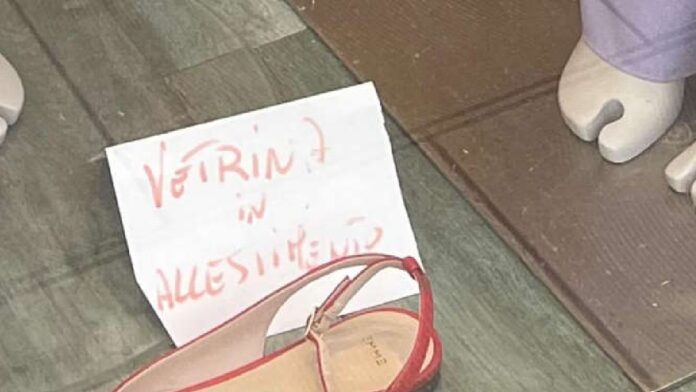 VETRINA
in
ALLESTIMENTO